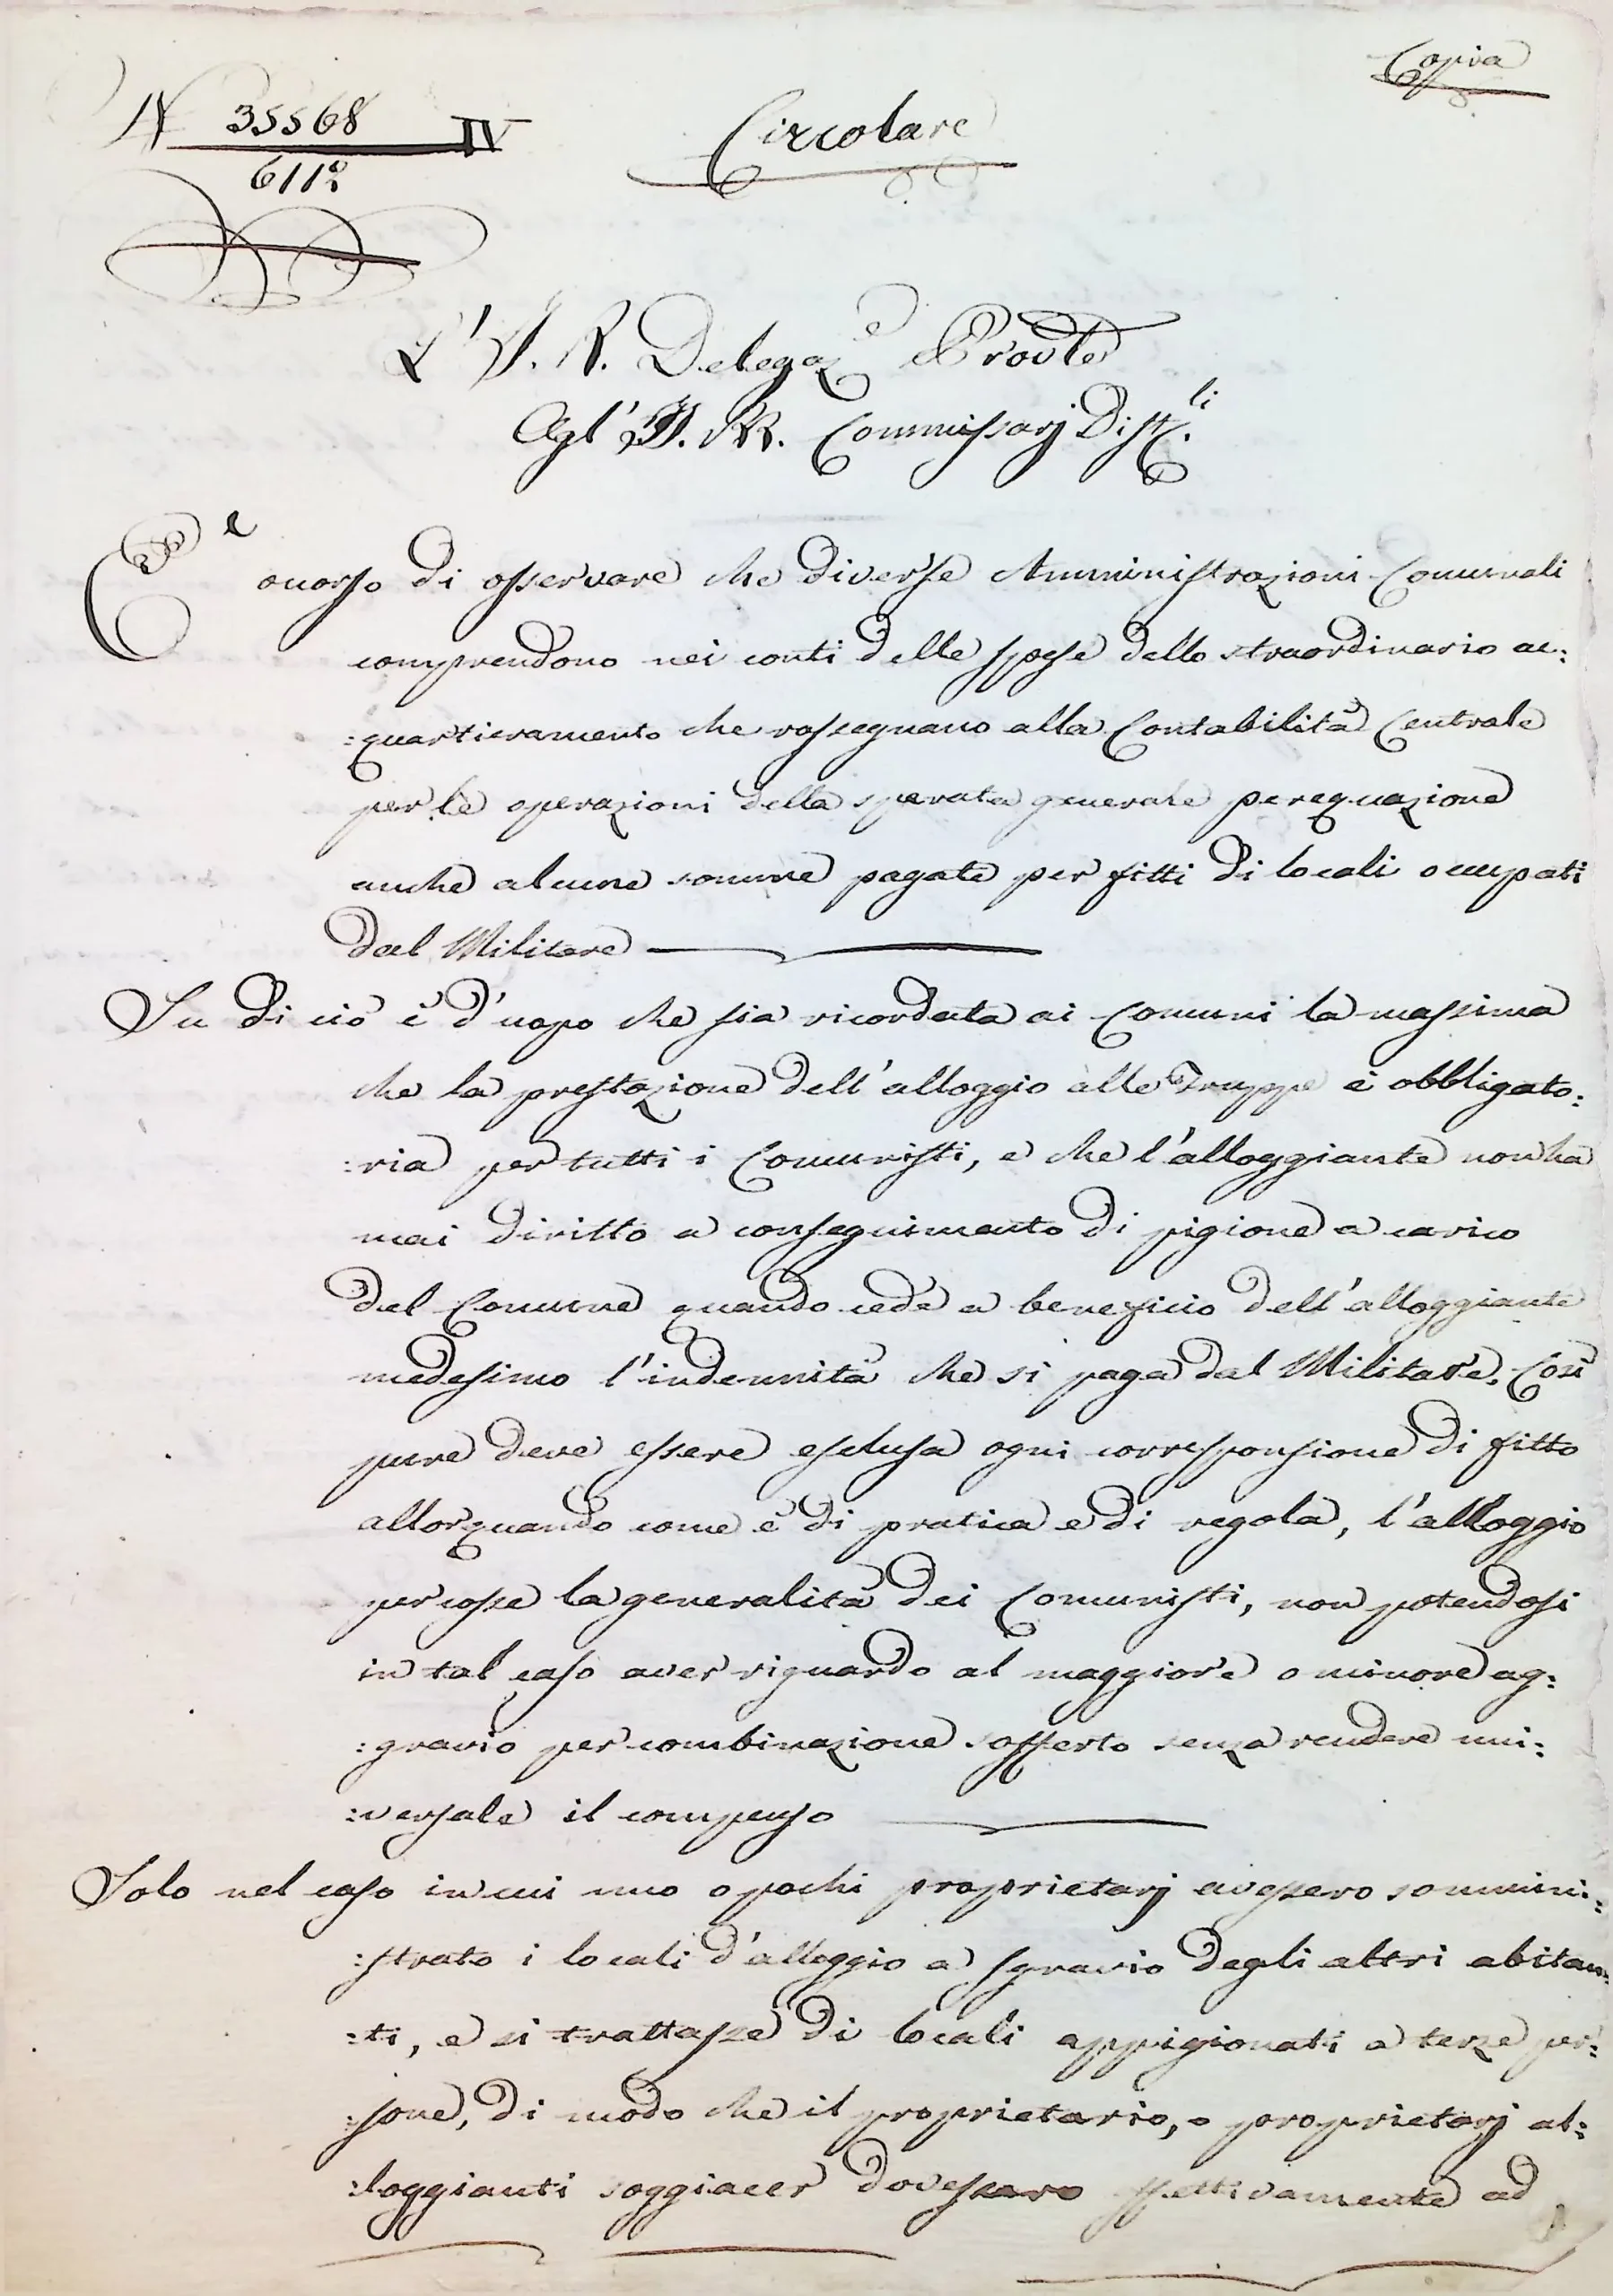 Copia
N 35568 IV
6112
Circolare
L'I. R. Delegaz.e Provle
Agl'II. RR. Commissarj Distr.li
E' occorso di osservare che diverse Amministrazioni Comunali
comprendono nei conti delle spese dello straordinario ac:
:quartieramento che rassegnano alla Contabilità Centrale
per le operazioni della sperata generale perequazione
anche alcune somme pagate per fitti di locali occupati
dal Militare
Su di ciò è d'uopo che sia ricordata ai Comuni la massima
che la prestazione dell'alloggio alle Truppe è obbligato:
:ria per tutti i Comunisti, e che l'alloggiante non ha
mai diritto a conseguimento di pigione a carico
del Comune quando cede a beneficio dell'alloggiante
medesimo l'indennità che si paga dal Militare. Così
pure deve essere esclusa ogni corrisponsione di fitto
allorquando come è di pratica e di regola, l'alloggio
percosse la generalità dei Comunisti, non potendosi
in tal caso aver riguardo al maggiore o minore ag:
:gravio per combinazione sofferto senza rendere uni:
:versale il compenso
Solo nel caso in cui uno o pochi proprietarj avessero sommini:
:strato i locali d'alloggio a sgravio degli altri abitan:
:ti, e si trattasse di locali appigionati a terze per:
:sone, di modo che il proprietario, o proprietarj al:
:loggianti soggiacer dovessero effettivamente ad